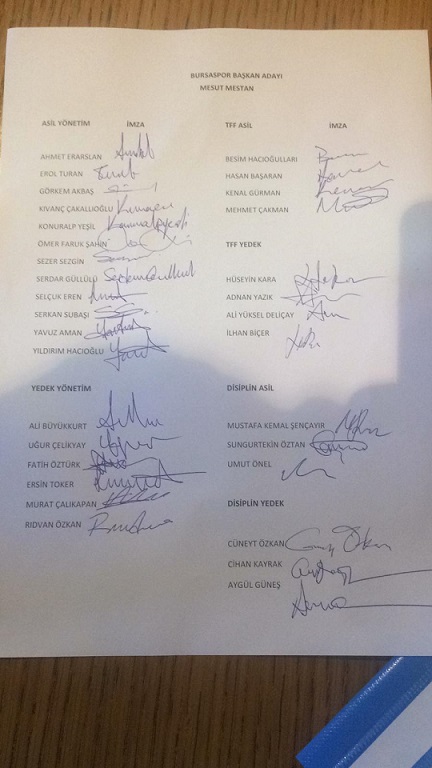 BURSASPOR BAŞKAN ADAYI
MESUT MESTAN
ASİL YÖNETİM İMZA
AHMET ERARSLAN
EROL TURAN
GÖRKEM AKBAŞ
KIVANÇ ÇAKALLIOĞLU
KONURALP YEŞİL
ÖMER FARUK ŞAHİN
SEZER SEZGİN
SERDAR GÜLLÜLÜ
SELÇUK EREN
SERKAN SUBAŞI
YAVUZ AMAN
YILDIRIM HACIOĞLU
YEDEK YÖNETİM
ALİ BÜYÜKKURT
UĞUR ÇELİKYAY
FATİH ÖZTÜRK
ERSİN TOKER
MURAT ÇALIKAPAN
RIDVAN ÖZKAN
TFF ASİL İMZA
BESİM HACIOĞULLARI
HASAN BAŞARAN
KENAL GÜRMAN
MEHMET ÇAKMAN
TFF YEDEK
HÜSEYİN KARA
ADNAN YAZIK
ALİ YÜKSEL DELİÇAY
İLHAN BİÇER
DİSİPLİN ASİL
MUSTAFA KEMAL ŞENÇAYIR
SUNGURTEKİN ÖZTAN
UMUT ÖNEL
DİSİPLİN YEDEK
CÜNEYT ÖZKAN
CİHAN KAYRAK
AYGÜL GÜNEŞ